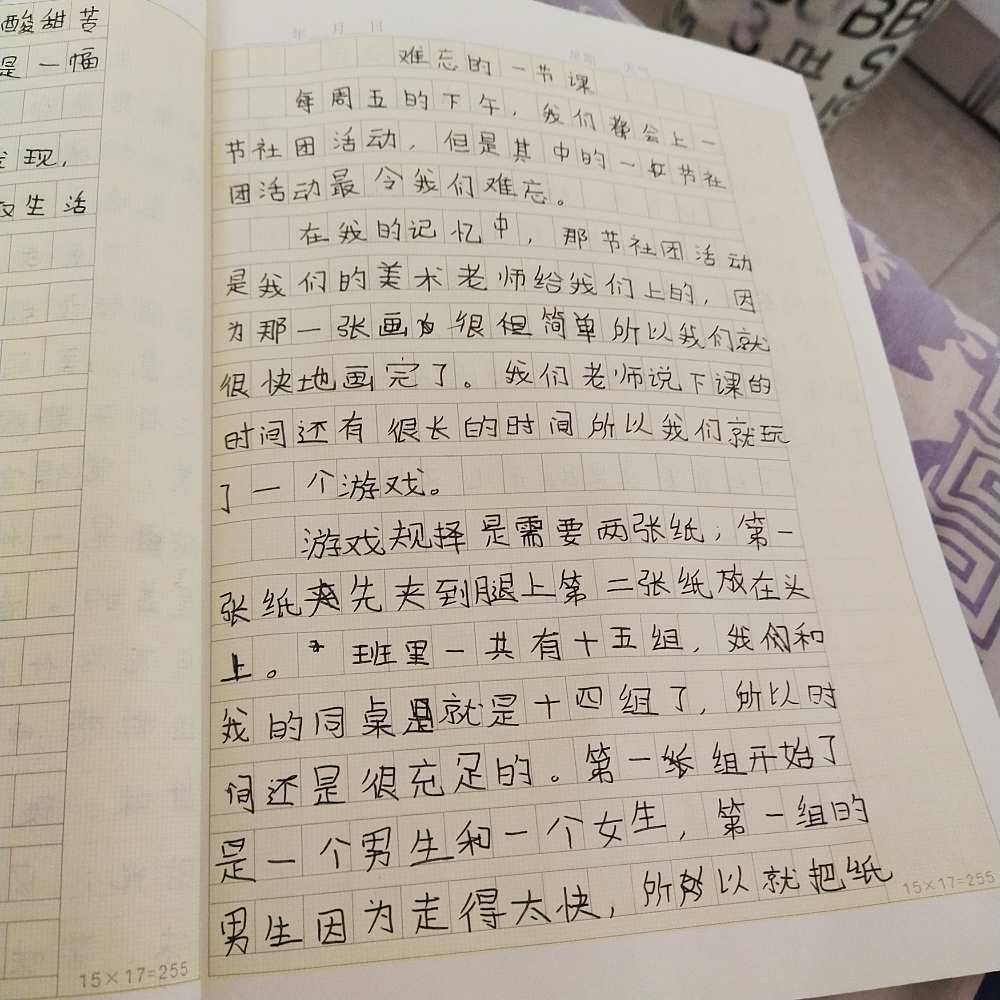 酸甜苦
是一幅
发现，
生活
15×17=255
年 月 日
难忘的一节课
每周五的下午，我们都会上一
节社团活动，但是其中的一次节社
团活动最令我们难忘。
在我的记忆中，那节社团活动
是我们的美术老师给我们上的，因
为那一张画很但简单所以我们就
很快地画完了。我们老师说下课的
时间还有很长的时间所以我们就玩
了一个游戏。
游戏规择是需要两张纸，第一
张纸先夹到腿上第二张纸放在头
上。班里一共有十五组，我们和
我的同桌就是十四组了，所以时
间还是很充足的。第一组开始了
是一个男生和一个女生，第一组的
男生因为走得太快，所以就把纸
15×17=255
BB
TH